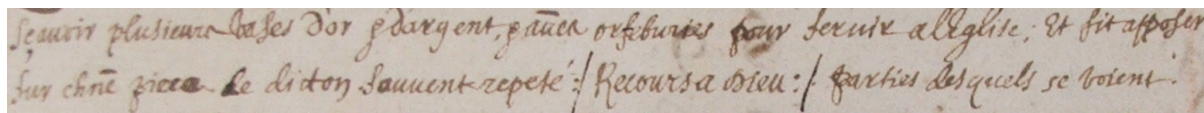 Sçauoir plusieurs vases d'or & d'argent, & aũes orfeburies pour seruir a l'Eglise; Et fit apposer
sur chñe piece le dicton souuent repeté :/ Recours a Dieu :/ parties desquels se voient.